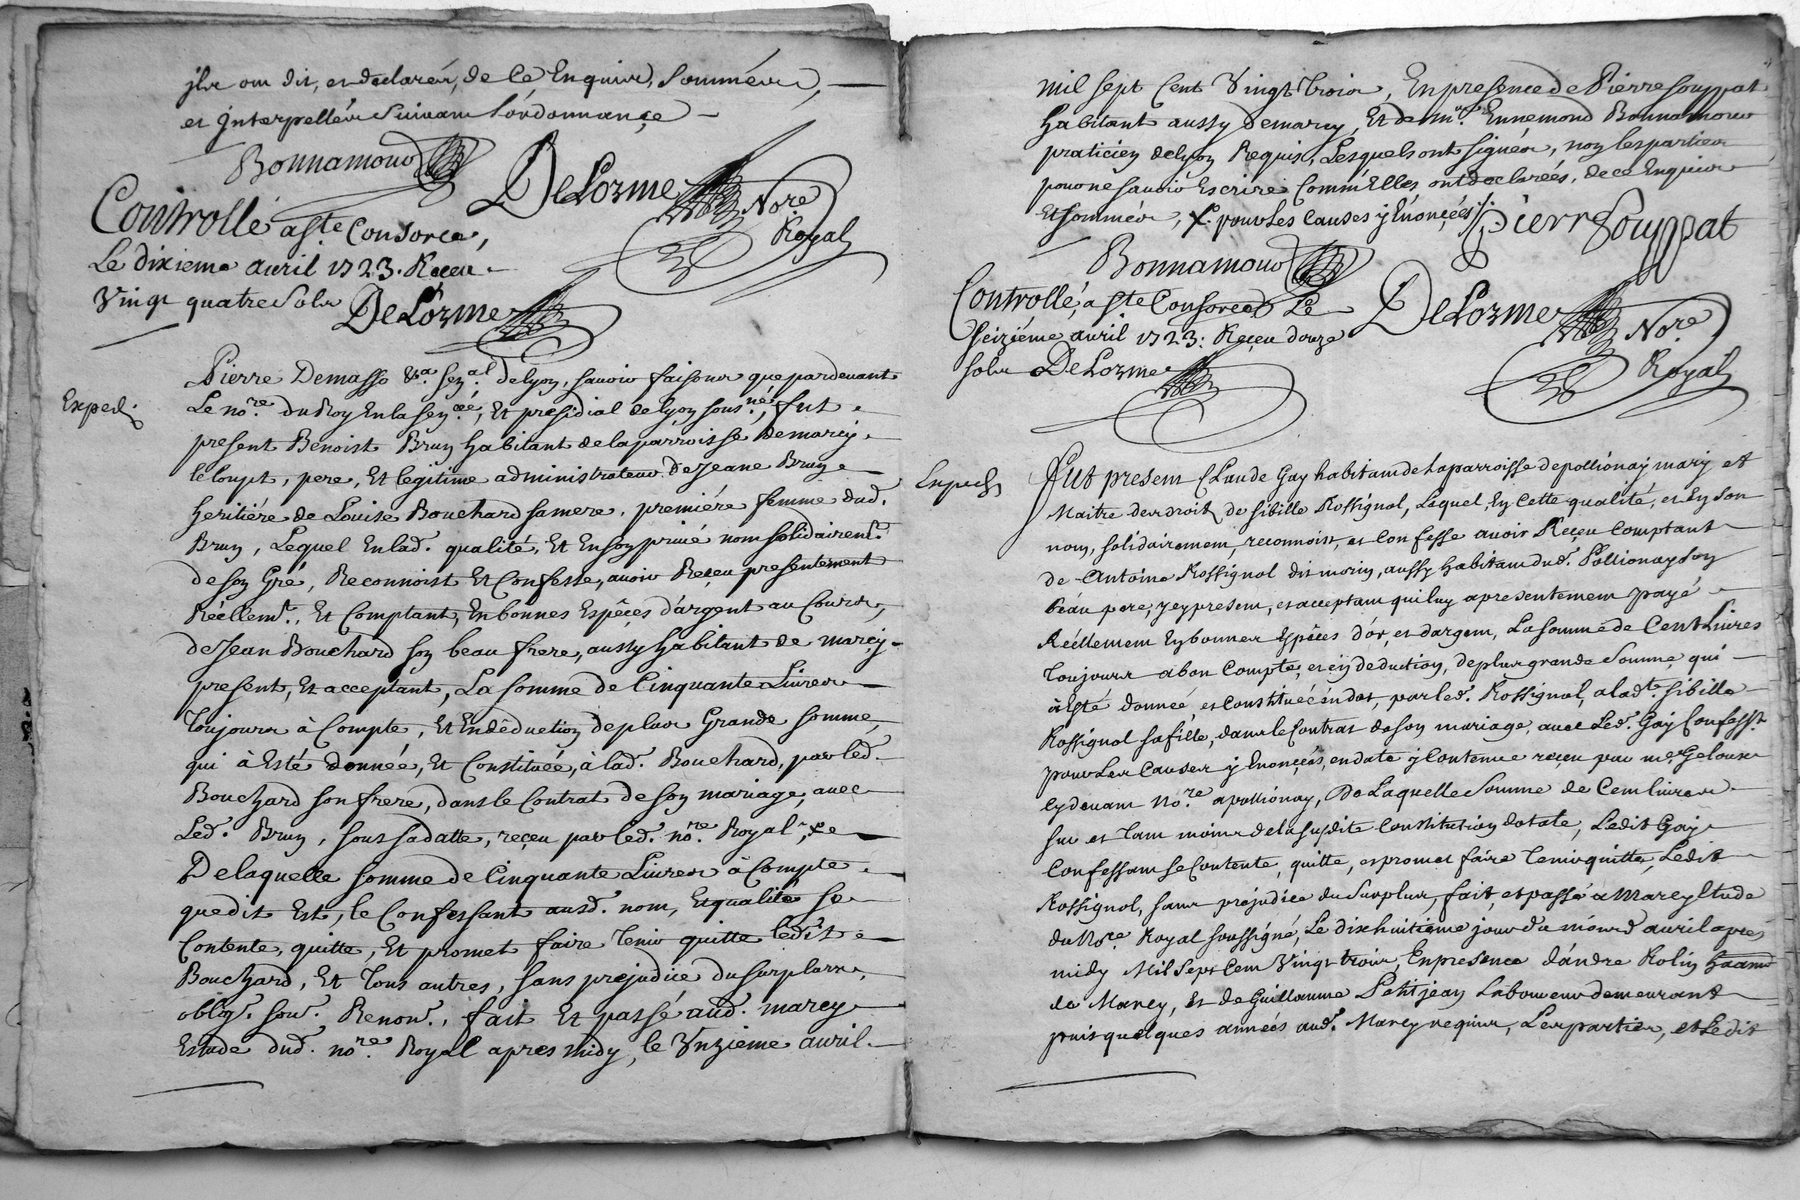 jls ont dit, et declarés, de ce, Enquis, Sommés,
et jnterpellés Suivant l'ordonnance
Bonnamour
DeLorme Nore Royal
Controllé a Ste Consorce,
Le dixieme avril 1723. Receu
Vingt quatre Sols DeLorme
Pierre Demasso &a. Senal. delyon, savoir faisons que pardevant
Exped.
Le nore. du Roy En la Senéé, Et presidial de Lyon sousné, fut
present Benoist Brun habitant de la parroisse demarcy
le loupt, pere, Et legitime administrateur de Jeane Brun
heritiére de Louise Bouchard sa mere, premiére femme dud.
Brun, Lequel En lad. qualité, Et En son privé nom solidairemt.
de son Gré, Reconnoist Et Confesse, avoir Reçeu presentement
Réellemt., Et Comptant, En bonnes Espêces d'argent au Cours,
de Jean Bouchard son beau frere, aussy habitant de marcy
present, Et acceptant, La somme de Cinquante Livres
Toujours à Compte, Et En déduction de plus Grande somme,
qui à Esté donnée, Et Constituée, à lad. Bouchard, par led.
Bouchard son frere, dans le Contrat de son mariage, avec
Led. Brun, sous sa datte, reçeu par led. nore Royal,
De laquelle somme de Cinquante Livres à Compte
que dit Est, le Confessant ausd. nom, Et qualité se
Contente, quitte, Et promet faire Tenir quitte ledit
Bouchard, Et Tous autres, sans prejudice du surplus,
oblig. sou. Renon., fait Et passé aud. marcy
Estude dud. nore. Royal apres midy, le Vnzieme avril
mil sept Cent Vingt Trois, En presence de Pierre souppat
habitant aussy demarcy, Et de mr. Ennemond Bonnamour
praticien de lyon Requis, Lesquels ont signés, non les parties
pour ne savoir Escrire Comm'Elles ont declareés, de ce Enquis
Et sommés, pour Les Causes y Enonçéés
Pierr Souppat
Bonnamour
Controllé, a Ste Consorce, Le
seiziéme avril 1723. Reçeu douze
sols DeLorme
DeLorme Nore Royal
Fut present Claude Gay habitant de la parroisse de pollionay mary et
Maitre des droits de sibille Rossignol, Lequel, En Cette qualité, et En son
nom, solidairement, reconnoist, et Confesse avoir Reçeu Comptant
de Antoine Rossignol dit morin, aussy habitant dud. Pollionay son
beau pere, y ey present, et acceptant qui luy a presentement payé
Réellement En bonnes Espêces d'or, et d'argent, La somme de Cent Livres
Toujours a bon Compte, et en deduction, de plus grande somme, qui
à Esté donnée, et Constituée en dot, par led. Rossignol, a ladte. sibille
Rossignol sa fille, dans le Contrat de son mariage, avec Led. Gay Confesst.
pour Les Causes y Enonçéés, en date y Contenue reçeu par me.
cy devant Nore a pollionay, De Laquelle Somme de Cent livres
sur et Tant moins de la susdite Constitution dotale, Ledit Gay
Confessant se Contente, quitte, et promet faire Tenir quitte, Ledit
Rossignol, sans prejudice du Surplus, fait, et passé a Marcy Etude
du Nore Royal soussigné, Le dixhuitiéme jour du mois d'avril apres
midy Mil sept Cent Vingt trois, En presence d'andre Rolin
de Marcy, Et de Guillaume Petitjean Laboureur demeurant
puis quelques années aud. Marcy requis, Les parties, et Ledit